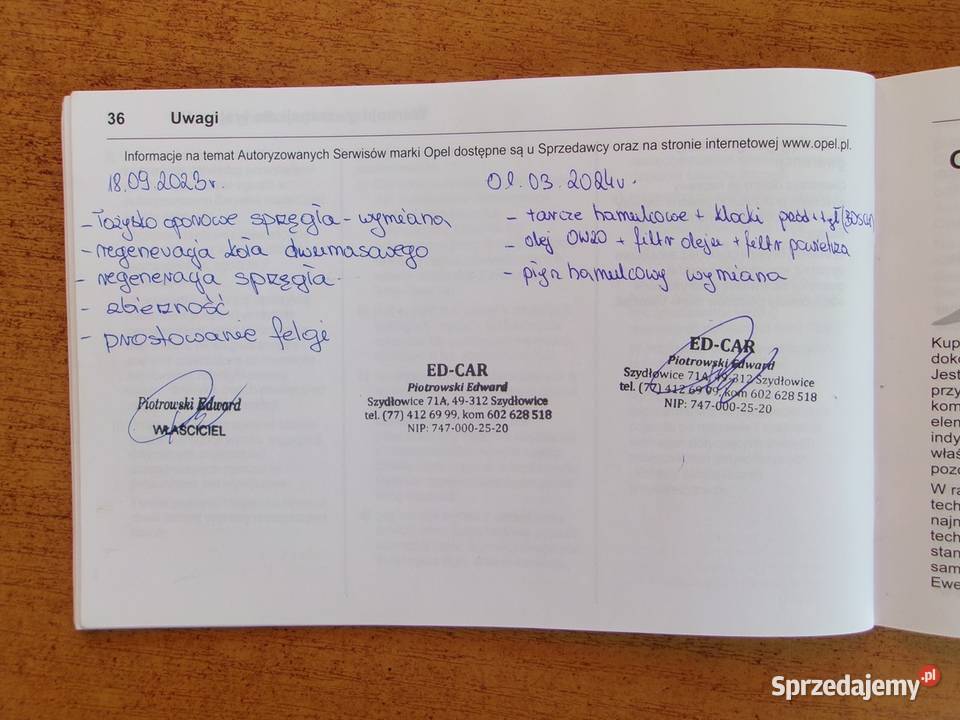 36 Uwagi
Informacje na temat Autoryzowanych Serwisów marki Opel dostępne są u Sprzedawcy oraz na stronie internetowej www.opel.pl.
18.09.2023r.
- łożysko oporowe sprzęgła - wymiana
- regeneracja koła dwumasowego
- regeneracja sprzęgła
- zbieżność
- prostowanie felgi
Piotrowski Edward
WŁAŚCICIEL
ED-CAR
Piotrowski Edward
Szydłowice 71A, 49-312 Szydłowice
tel. (77) 412 69 99, kom 602 628 518
NIP: 747-000-25-20
01.03.2024r.
- tarcze hamulcowe + klocki przód + tył (BOSCH)
- olej 0W20 + filtr oleju + filtr powietrza
- płyn hamulcowy wymiana
ED-CAR
Piotrowski Edward
Szydłowice 71A, 49-312 Szydłowice
tel. (77) 412 69 99, kom 602 628 518
NIP: 747-000-25-20
Kup
doko
Jest
przy
kom
elem
indy
właś
pozo
W ra
tech
najn
tech
stan
sam
Ewe
Sprzedajemy.pl